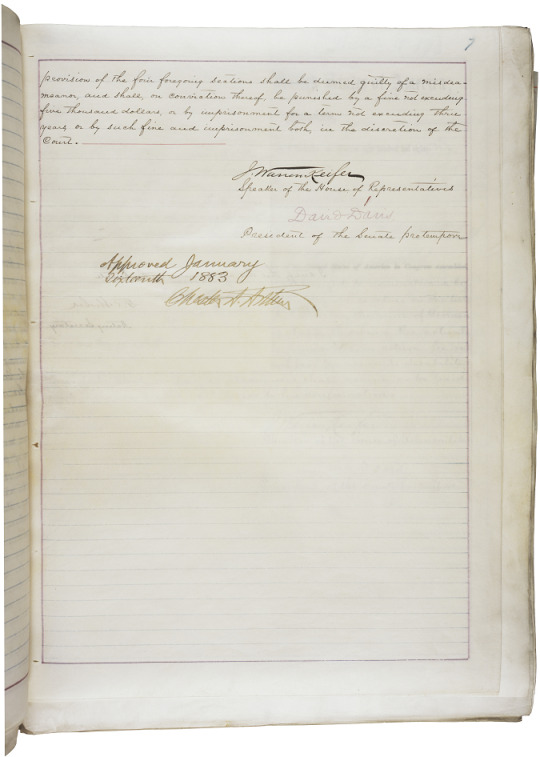 7
provision of the four foregoing sections shall be deemed guilty of a misdea-
meanor, and shall, on conviction thereof, be punished by a fine not exceeding
five thousand dollars, or by imprisonment for a term not exceeding three
years, or by such fine and imprisonment both, in the discretion of the
Court.
J. Warren Keifer
Speaker of the House of Representatives
David Davis
President of the Senate pro tempore
Approved January
Sixteenth 1883
Chester A. Arthur